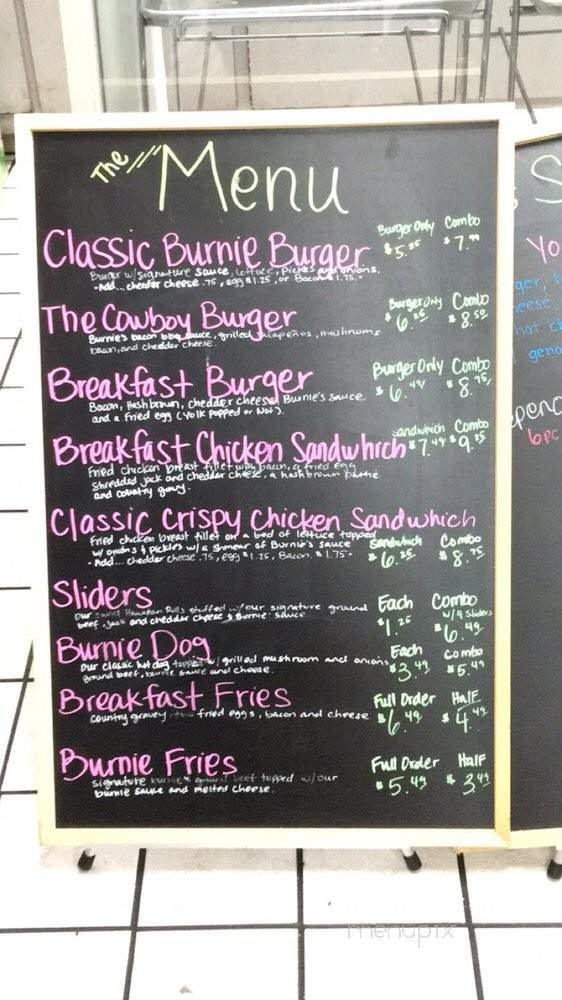 The Menu
Classic Burnie Burger
Burger Only Combo
$7.99
Burger w/signature sauce, lettuce, pickles and onions.
-Add... cheddar cheese .75, egg $1.25, or Bacon $1.75.-
The Cowboy Burger
Burger Only Combo
$8.50
Burnie's bacon bbq sauce, grilled jalapeños, mushrooms
bacon, and chedder cheese.
Breakfast Burger
Burger Only Combo
$6.49 $8.75
Bacon, Hashbrown, chedder cheese, Burnie's sauce
and a fried egg (Yolk Popped or Not).
Breakfast Chicken Sandwhich
Sandwhich Combo
$7.49 $9.25
Fried chicken breast fillet with bacon, a fried egg
shredded jack and chedder cheese, a hashbrown pattie
and country gravy.
Classic Crispy Chicken Sandwhich
Fried chicken breast fillet on a bed of lettuce topped
w/ onions & pickles w/ a smear of Burnie's sauce
-Add... chedder cheese .75, egg $1.25, Bacon. $1.75-
Sandwhich Combo
$6.25 $8.75
Sliders
Each Combo
w/4 Sliders
$1.25 $6.49
Our sweet Hawaiian Rolls stuffed w/our signature ground
beef, jack and chedder cheese & Burnie sauce
Burnie Dog
Each Combo
$3.49 $5.49
Our classic hot dog topped w/ grilled mushroom and onions
ground beef, burnie sauce and cheese.
Breakfast Fries
Full Order Half
$6.49 $4.49
country gravey, two fried eggs, bacon and cheese
Burnie Fries
Full Order Half
$5.49 $3.49
signature burnie's ground beef topped w/our
burnie sauce and melted cheese.
S
Yo
ger,
eese,
not ch
geno
penc
6pc
menupix